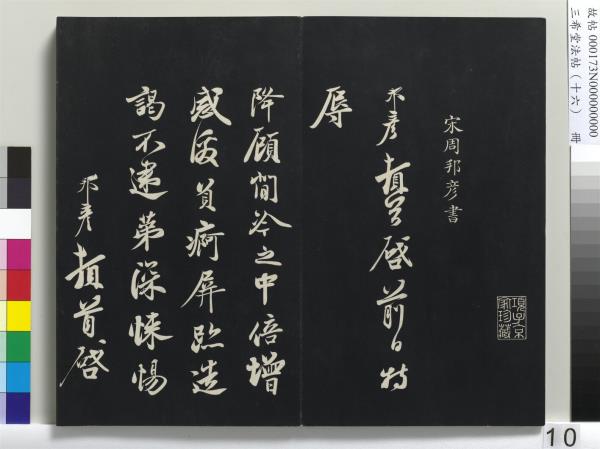 故帖 000173N000000000
三希堂法帖（十六） 冊
宋周邦彥書
項子京家珍藏
邦彥頓首啓前日特
辱
降顧閒冷之中倍增
感 負痾屏跡造
謁不逮第深悚惕
邦彥頓首啓
10